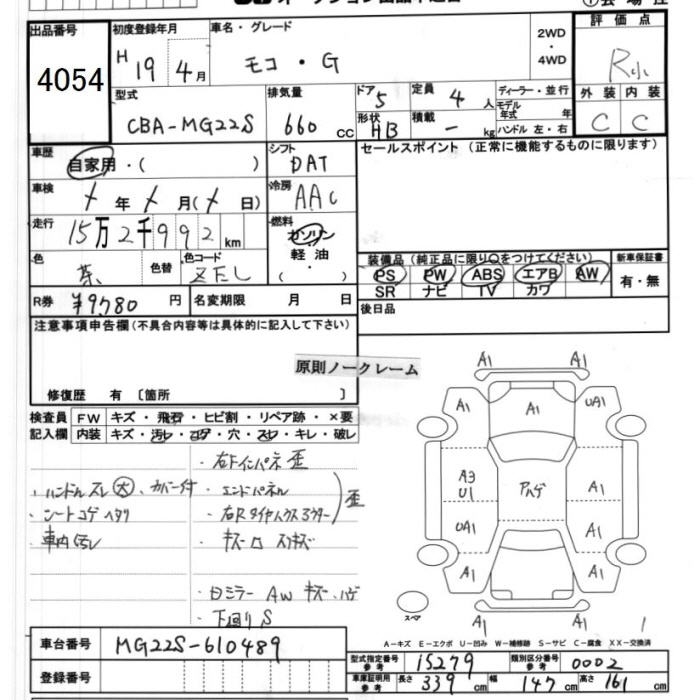 出品番号 4054
初度登録年月 H 19 年 4月
車名・グレード モコ・G
2WD・4WD
評価点 R小
型式 CBA-MG22S
排気量 660 cc
ドア 5
形状 HB
定員 4 人
積載 - kg
ディーラー・並行
モデル年式 年
ハンドル 左・右
外装 C
内装 C
車歴 自家用・( )
シフト DAT
セールスポイント (正常に機能するものに限ります)
車検 年 月( 日)
冷房 AAC
走行 15万2千992 km
燃料 ガソリン 軽油・( )
色 茶
色替
色コード ZTし
装備品 (純正品に限り○をつけてください)
PS PW ABS エアB AW
SR ナビ TV カワ
新車保証書 有・無
R券 ¥9780 円
名変期限 月 日
後日品
注意事項申告欄(不具合内容等は具体的に記入して下さい)
原則ノークレーム
修復歴 有 〔箇所 〕
検査員記入欄
FW キズ・飛石・ヒビ割・リペア跡・×要
内装 キズ・汚レ・コゲ・穴・スレ・キレ・破レ
・右トインパネ 歪
・ハンドルスレ(大) カバー付
・エンドパネル
・シートコゲ ヘタリ
・右Rタイヤハウス 歪
・車内汚レ
・キズ凹 スリキズ
・ミラー AW キズ・ハゲ
・下回りS
A1 A1
A1 A1 UA1
A3 U1 アハゲ A1
UA1 A1
A1 A1
A1 A1
スペア
A-キズ E-エクボ U-凹み W-補修跡 S-サビ C-腐食 XX-交換済
車台番号 MG22S-610489
型式指定番号 参考 15279
類別区分番号 参考 0002
登録番号
車庫証明用 参考 長さ 339 cm 幅 147 cm 高さ 161 cm